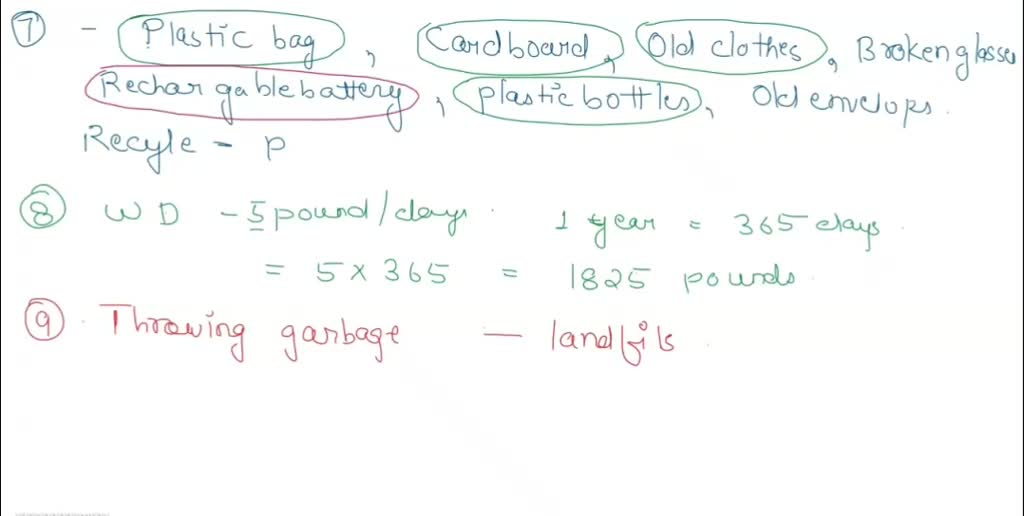 ⑦ - Plastic bag, Cardboard, Old clothes, Broken glasses
Rechargable battery, plastic bottles, Old envelops.
Recyle - p
⑧ W D - 5 pound/days. 1 year = 365 days.
= 5 x 365 = 1825 pounds.
⑨. Throwing garbage — landfils.